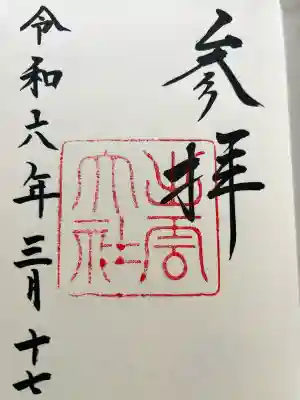 参拝
出雲
大社
令和六年三月十七